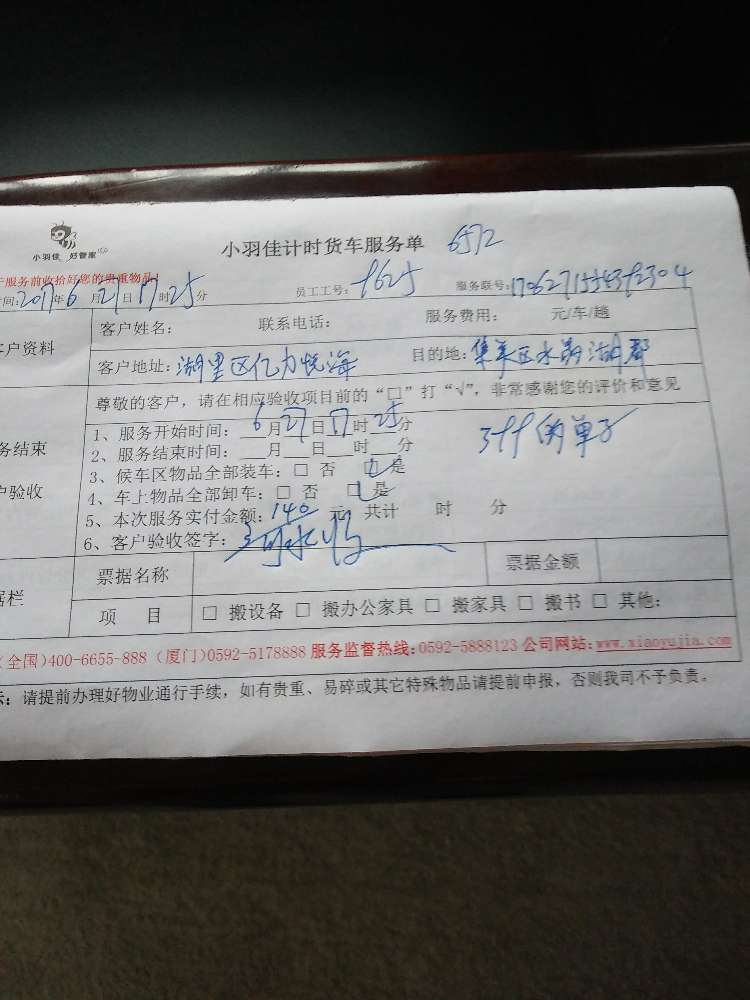 小羽佳 好管家
小羽佳计时货车服务单 6572
服务前收拾好您的贵重物品!
时间:2017年6月27日17时25分 员工工号: 服务联号:
客户资料 客户姓名: 联系电话: 服务费用: 元/车/趟
客户地址:湖里区亿力悦海 目的地:集美区水晶湖郡
尊敬的客户，请在相应验收项目前的“□”打“√”，非常感谢您的评价和意见
务结束
户验收
1、服务开始时间: 6月27日17时25分
2、服务结束时间: 月 日 时 分
的单子
3、候车区物品全部装车:□ 否 □是
4、车上物品全部卸车:□ 否 □是
5、本次服务实付金额:140元 共计 时 分
6、客户验收签字:
据栏 票据名称 票据金额
项 目 □ 搬设备 □ 搬办公家具 □ 搬家具 □ 搬书 □ 其他:
(全国)400-6655-888 (厦门)0592-5178888 服务监督热线:0592-5888123 公司网站:www.xiaoyujia.com
示: 请提前办理好物业通行手续，如有贵重、易碎或其它特殊物品请提前申报，否则我司不予负责。